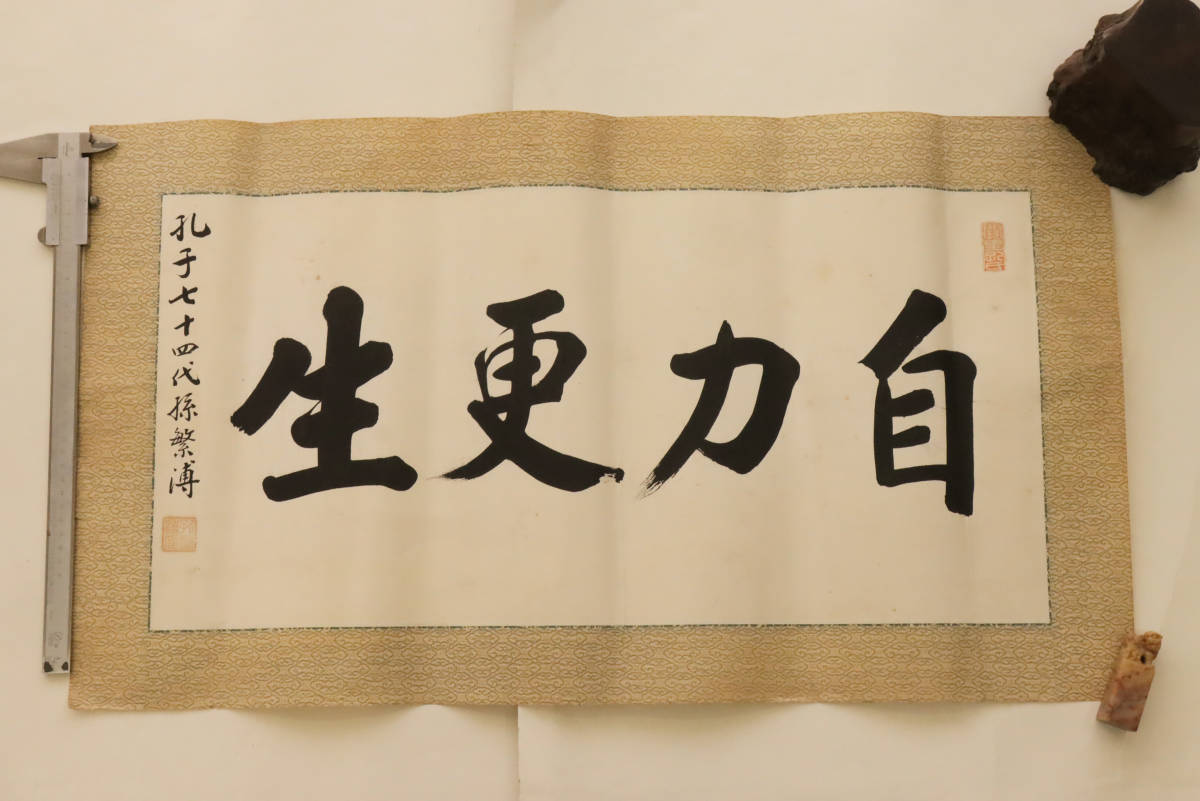 自力更生
孔子七十四代孫繁溥